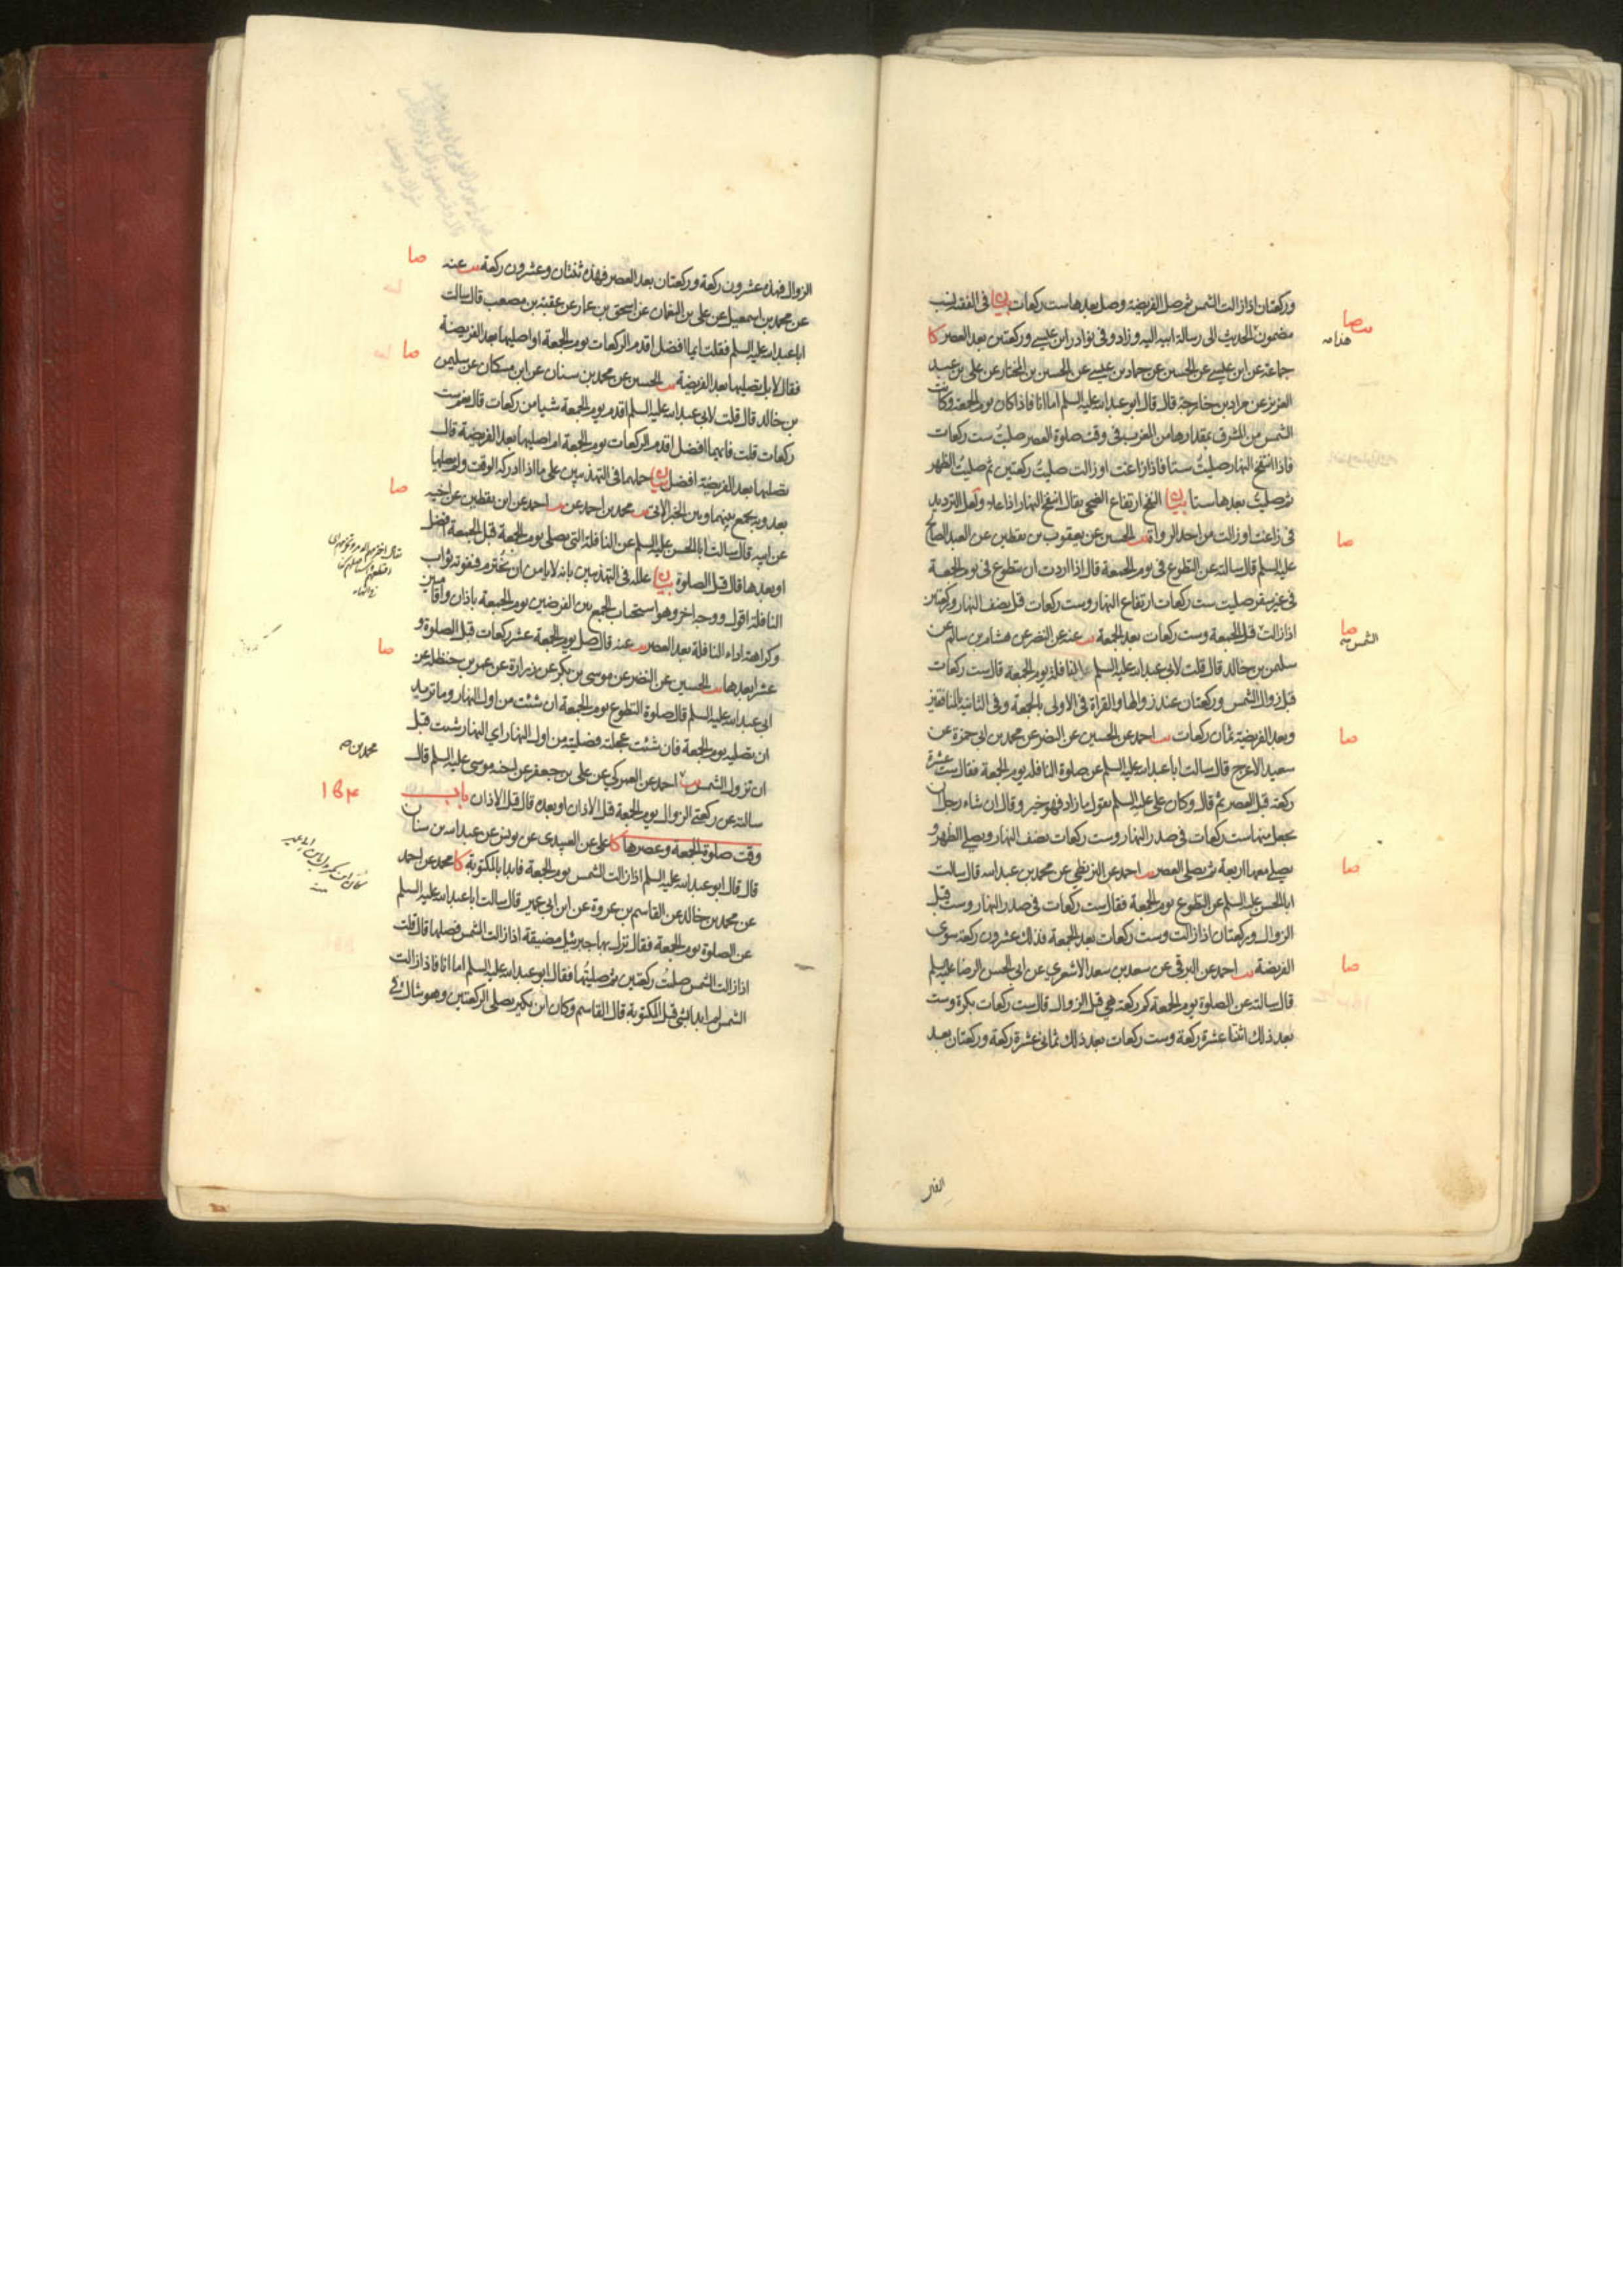 وركعتان اذا زالت الشمس ثم صل الفريضة وصل بعدها ست ركعات بيان في الفقه نسب
مضمون الحديث الى رسالة ابيه اليه وزاد وفي نوادر ابن عيسى وركعتين بعد العصر كا
جماعة عن ابن عيسى عن الحسين عن حماد بن عيسى عن الحسين بن المختار عن علي بن عبد
العزيز عن مراد بن خارجة قال قال ابو عبد الله عليه السلم اما انا فاذا كان يوم الجمعة وكانت
الشمس من المشرق بمقدارها من المغرب في وقت صلوة العصر صليت ست ركعات
فاذا انتفخ النهار صليت ستا فاذا زاغت او زالت صليت ركعتين ثم صليت الظهر
ثم صليت بعدها ستا بيان النفخ ارتفاع الضحى يقال انتفخ النهار اذا علا ولعل الترديد
في زاغت او زالت من احد الرواة يب الحسين عن يعقوب بن يقطين عن العبد الصالح
عليه السلم قال سالته عن التطوع في يوم الجمعة قال اذا اردت ان تتطوع في يوم الجمعة
في غير سفر صليت ست ركعات ارتفاع النهار وست ركعات قبل نصف النهار وركعتين
اذا زالت قبل الجمعة وست ركعات بعد الجمعة يب عنه عن النضر عن هشام بن سالم عن
سليمن بن خالد قال قلت لابي عبد الله عليه السلم النافلة يوم الجمعة قال ست ركعات
قبل زوال الشمس وركعتان عند زوالها والقراة في الاولى بالجمعة وفي الثانية بالمنافقين
وبعد الفريضة ثمان ركعات يب احمد عن الحسين عن النضر عن محمد بن ابي حمزة عن
سعيد الاعرج قال سالت ابا عبد الله عليه السلم عن صلوة النافلة يوم الجمعة فقال ست عشرة
ركعة قبل العصر ثم قال وكان علي عليه السلم يقول ما زاد فهو خير وقال ان شاء رجل ان
يجعل منها ست ركعات في صدر النهار وست ركعات نصف النهار ويصلي الظهر و
يصلي معها اربعة ثم يصلي العصر يب احمد عن البزنطي عن محمد بن عبد الله قال سالت
ابا الحسن عليه السلم عن التطوع يوم الجمعة فقال ست ركعات في صدر النهار وست قبل
الزوال وركعتان اذا زالت وست ركعات بعد الجمعة فذلك عشرون ركعة سوى
الفريضة يب احمد عن البرقي عن سعد بن سعد الاشعري عن ابي الحسن الرضا عليه السلم
قال سالته عن الصلوة يوم الجمعة كم ركعة هي قبل الزوال قال ست ركعات بكرة وست
بعد ذلك اثنتا عشرة ركعة وست ركعات بعد ذلك ثماني عشرة ركعة وركعتان بعد
صا
هذا
صا
صا
الشمس
صا
صا
صا
الزوال فهذه عشرون ركعة وركعتان بعد العصر فهذه ثنتان وعشرون ركعة يب عنه
عن محمد بن اسمعيل عن علي بن النعمان عن اسحق بن عمار عن عقبة بن مصعب قال سالت
ابا عبد الله عليه السلم فقلت ايما افضل اقدم الركعات يوم الجمعة او اصليها بعد الفريضة
فقال لا بل تصليها بعد الفريضة يب الحسين عن محمد بن سنان عن ابن مسكان عن سليمن
بن خالد قال قلت لابي عبد الله عليه السلم اقدم يوم الجمعة شيا من ركعات قال نعم ست
ركعات قلت فايهما افضل اقدم الركعات يوم الجمعة ام اصليها بعد الفريضة قال
تصليها بعد الفريضة افضل بيان حملهما في التهذيبين على ما اذا ادرك الوقت ولم يصلها
بعد وبه يجمع بينهما وبين الخبر الاتي يب محمد بن احمد عن يب احمد عن ابن يقطين عن اخيه
عن ابيه قال سالت ابا الحسن عليه السلم عن النافلة التي يصلى يوم الجمعة قبل الجمعة افضل
او بعدها قال قبل الصلوة بيان علله في التهذيبين بانه لا يامن ان يخترم فتفوته ثواب
النافلة اقول ووجه اخر وهو استحباب الجمع بين الفرضين يوم الجمعة باذان واقامتين
وكراهة اداء النافلة بعد العصر يب عنه قال صل يوم الجمعة عشر ركعات قبل الصلوة و
عشرا بعدها يب الحسين عن النضر عن موسى بن بكر عن زرارة عن عمر بن حنظلة عن
ابي عبد الله عليه السلم قال صلوة التطوع يوم الجمعة ان شئت من اول النهار وما تريد
ان تصليه يوم الجمعة فان شئت عجلته فصليته من اول النهار اي النهار شئت قبل
ان تزول الشمس يب احمد عن العمركي عن علي بن جعفر عن اخيه موسى عليه السلم قال
سالته عن ركعتي الزوال يوم الجمعة قبل الاذان او بعده قال قبل الاذان باب
وقت صلوة الجمعة وعصرها كا علي عن العبيدي عن يونس عن عبد الله بن سنان
قال قال ابو عبد الله عليه السلم اذا زالت الشمس يوم الجمعة فابدا بالمكتوبة كا محمد عن احمد
عن محمد بن خالد عن القاسم بن عروة عن ابن ابي عمير قال سالت ابا عبد الله عليه السلم
عن الصلوة يوم الجمعة فقال نزل بها جبرئيل مضيقة اذا زالت الشمس فصلها قال قلت
اذا زالت الشمس صليت ركعتين ثم صليتها فقال ابو عبد الله عليه السلم اما انا فاذا زالت
الشمس لم ابدا بشي قبل المكتوبة قال القاسم وكان ابن بكير يصلي الركعتين وهو شاك في
صا
صا
صا
صا
محمد بن
١٥٤